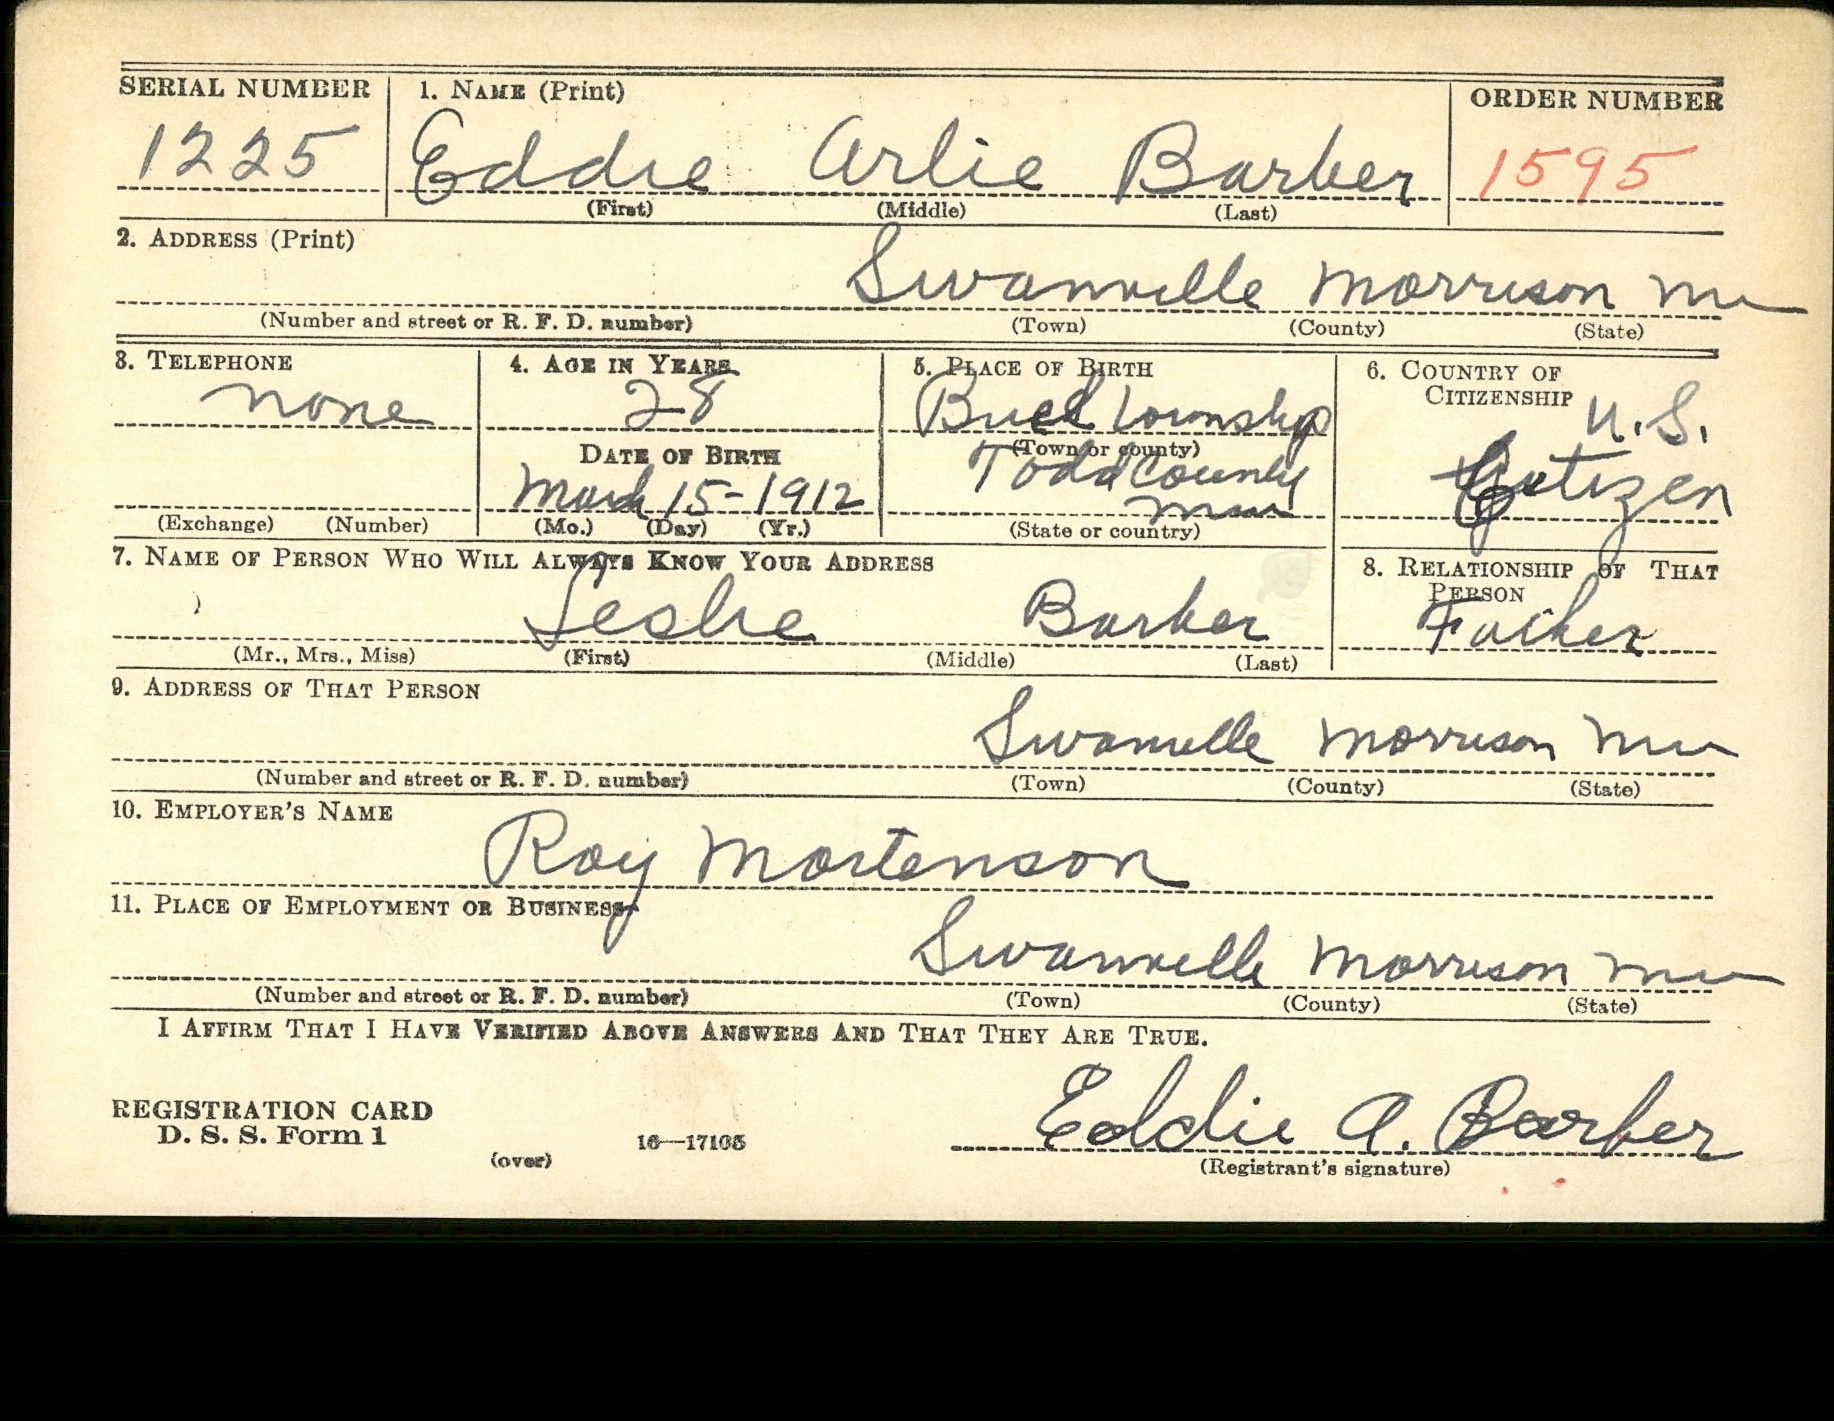 SERIAL NUMBER 1. NAME (Print) ORDER NUMBER
1225 Eddie Arlie Barber 1595
(First) (Middle) (Last)
2. ADDRESS (Print)
Swanville Morrison
(Number and street or R. F. D. number) (Town) (County) (State)
3. TELEPHONE 4. AGE IN YEARS 5. PLACE OF BIRTH 6. COUNTRY OF CITIZENSHIP
none 28 Township U.S.
DATE OF BIRTH (Town or county)
Todd County
March 15-1912
(Exchange) (Number) (Mo.) (Day) (Yr.) (State or country)
7. NAME OF PERSON WHO WILL ALWAYS KNOW YOUR ADDRESS 8. RELATIONSHIP OF THAT PERSON
Leslie Barber Father
(Mr., Mrs., Miss) (First) (Middle) (Last)
9. ADDRESS OF THAT PERSON
Swanville Morrison
(Number and street or R. F. D. number) (Town) (County) (State)
10. EMPLOYER'S NAME
Roy Mortenson
11. PLACE OF EMPLOYMENT OR BUSINESS
Swanville Morrison
(Number and street or R. F. D. number) (Town) (County) (State)
I AFFIRM THAT I HAVE VERIFIED ABOVE ANSWERS AND THAT THEY ARE TRUE.
REGISTRATION CARD
D. S. S. Form 1
(over) 16—17105
Eddie A. Barber
(Registrant's signature)